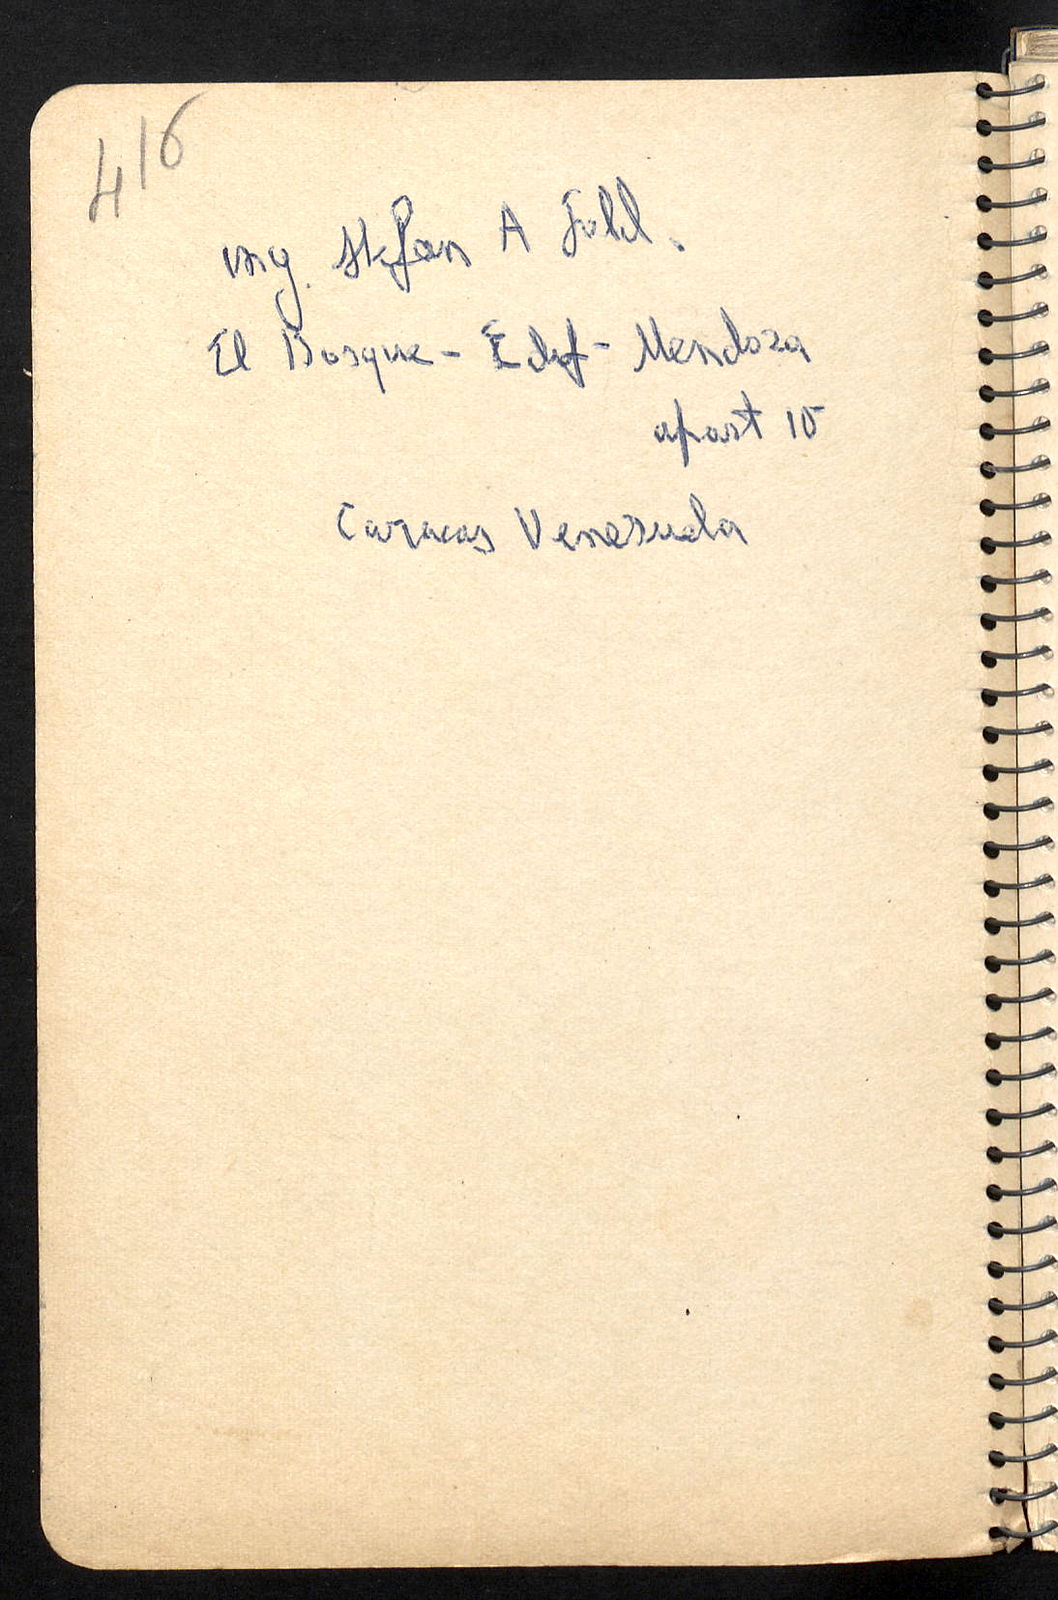 416
ing. Stefan A
El Bosque - Edif - Mendoza
apart 10
Caracas Venezuela